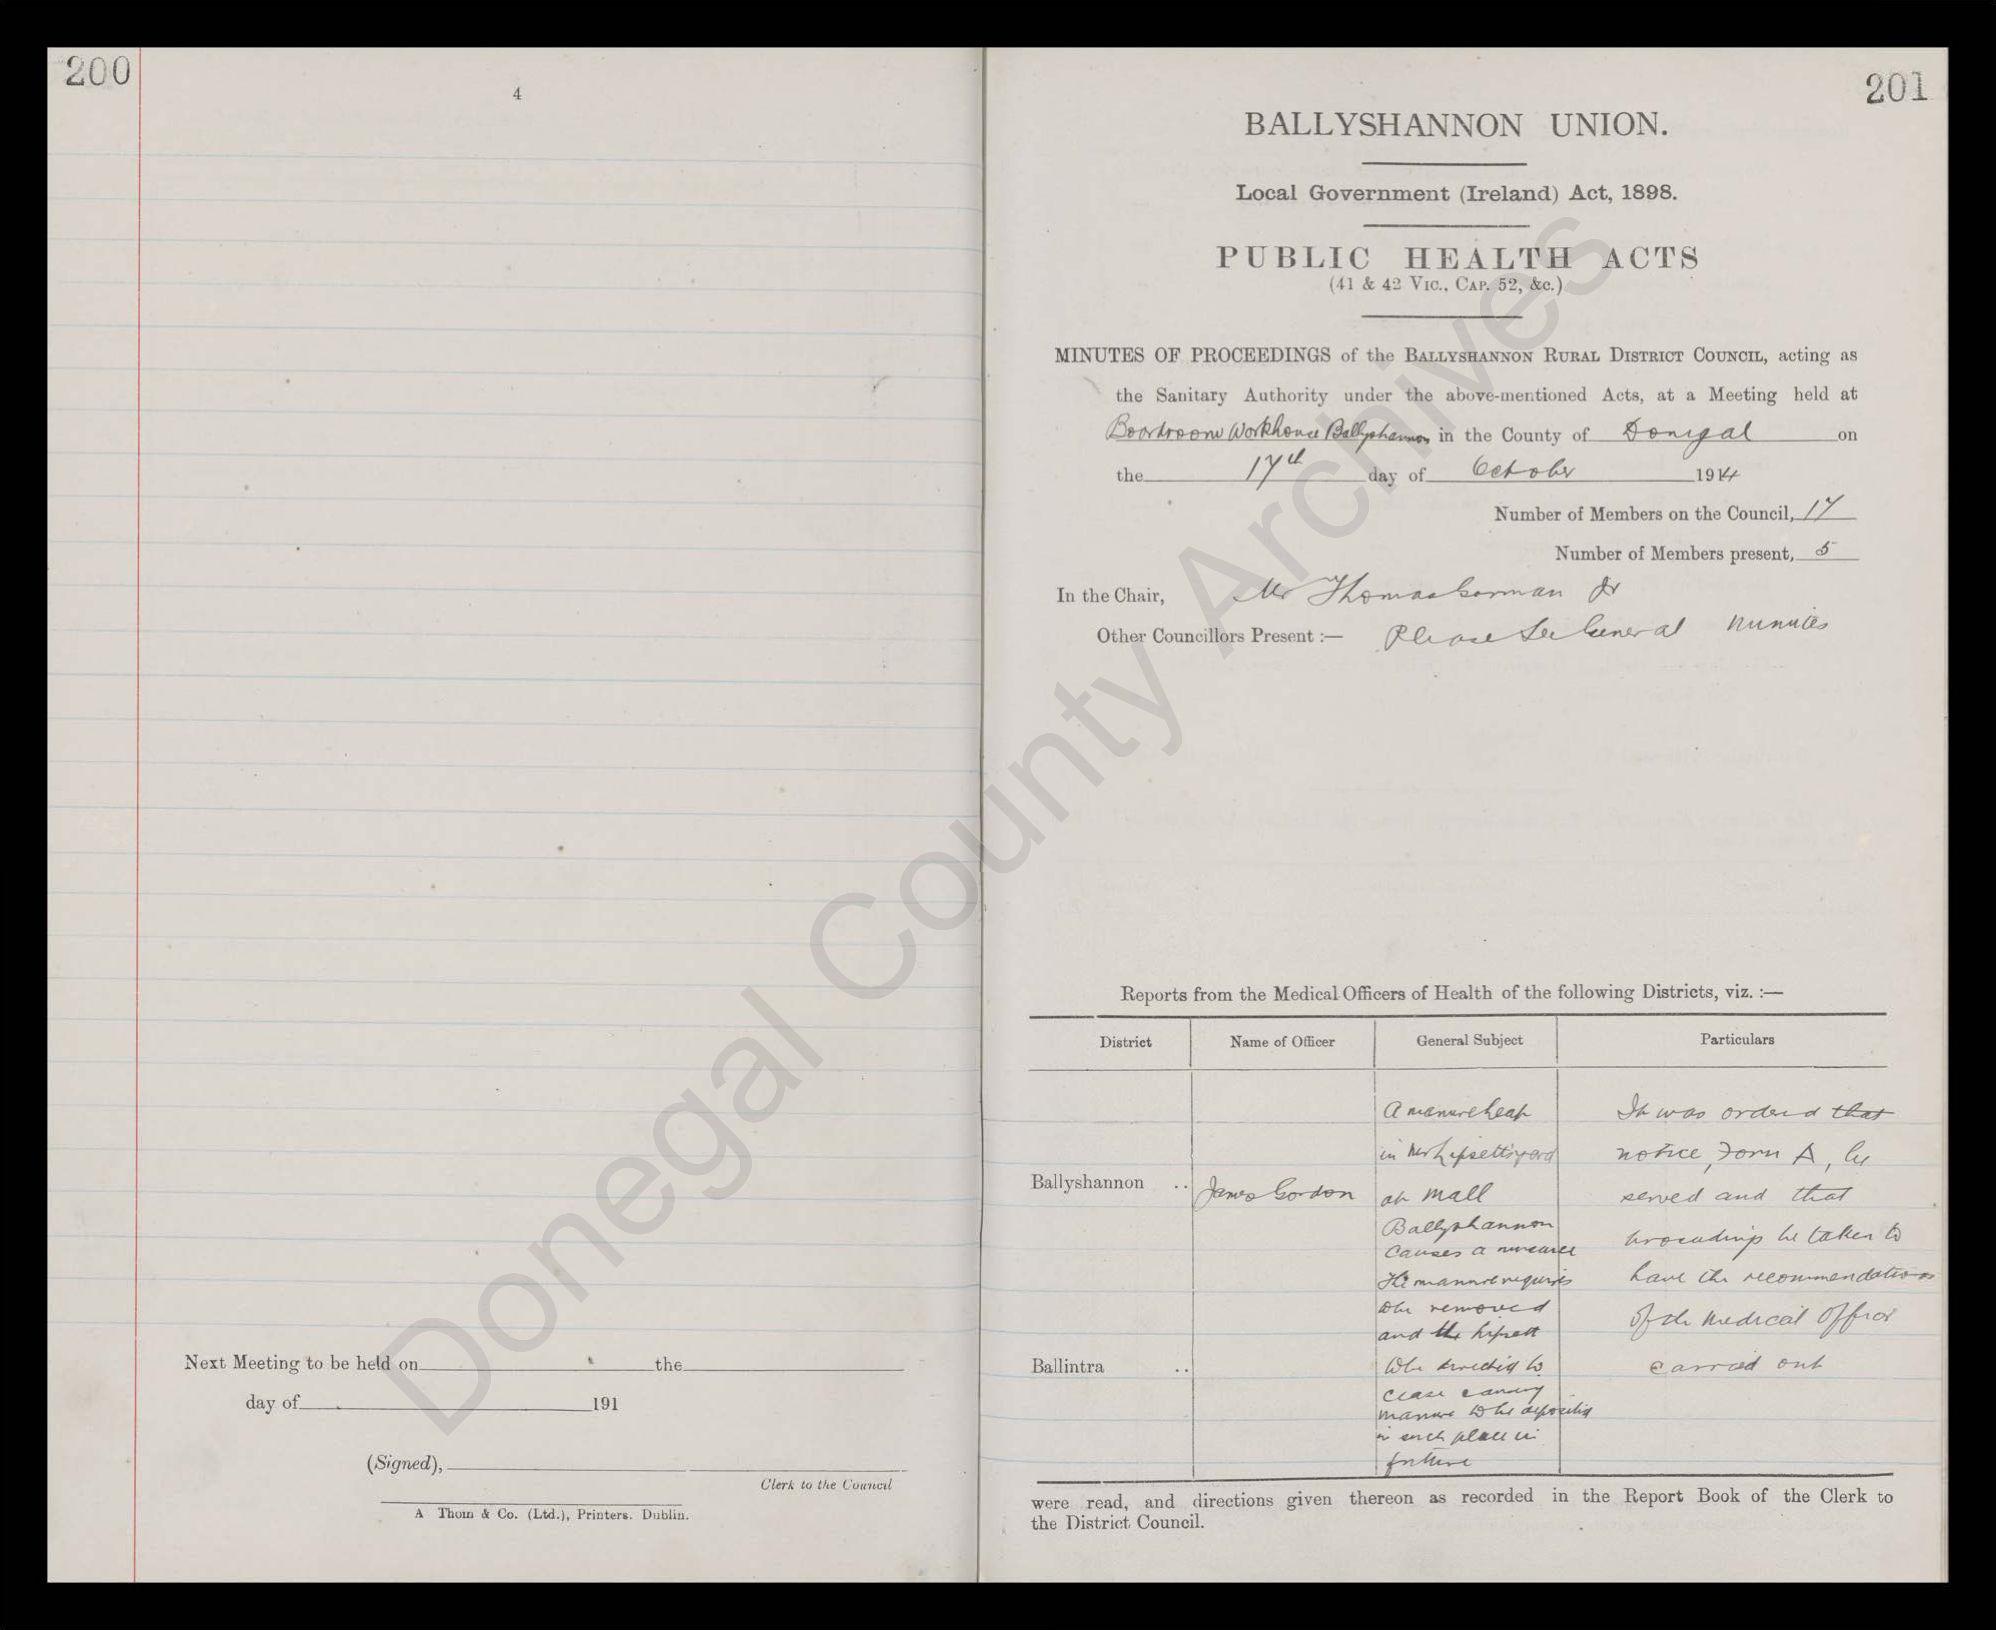 200
4
Next Meeting to be held on the
day of 191
(Signed),
Clerk to the Council
A Thom & Co. (Ltd.), Printers. Dublin.
201
BALLYSHANNON UNION.
Local Government (Ireland) Act, 1898.
PUBLIC HEALTH ACTS
(41 & 42 VIC., CAP. 52, &c.)
MINUTES OF PROCEEDINGS of the BALLYSHANNON RURAL DISTRICT COUNCIL, acting as
the Sanitary Authority under the above-mentioned Acts, at a Meeting held at
Boardroom Workhouse Ballyshannon in the County of Donegal on
the 17th day of October 1914
Number of Members on the Council, 17
Number of Members present, 5
In the Chair, Mr Thomas Gorman Jr
Other Councillors Present :— Please See General Minutes
Reports from the Medical Officers of Health of the following Districts, viz. :—
District Name of Officer General Subject Particulars
Ballyshannon ..
Ballintra ..
James Gordon
A manure heap
in Mr Lipsett's yard
at Mall
Ballyshannon
Causes a nuisance
The manure requires
to be removed
and the Lipsett
to be directed to
cease
manure to be deposited
in such place in
future
It was ordered that
notice, Form A, be
served and that
proceedings be taken to
have the recommendations
of the Medical Officer
carried out
were read, and directions given thereon as recorded in the Report Book of the Clerk to
the District Council.
Donegal County Archives